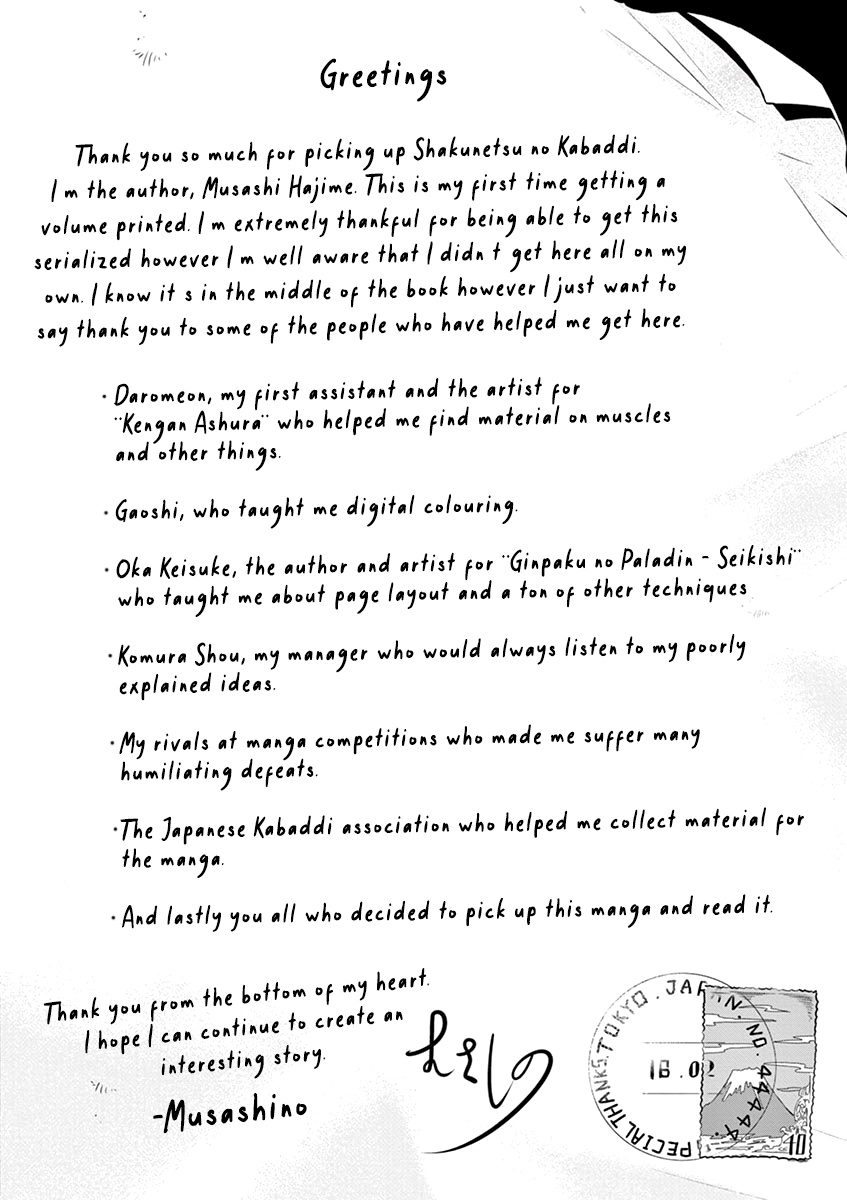 Greetings
Thank you so much for picking up Shakunetsu no Kabaddi.
I m the author, Musashi Hajime. This is my first time getting a
volume printed. I m extremely thankful for being able to get this
serialized however I m well aware that I didn t get here all on my
own. I know it s in the middle of the book however I just want to
say thank you to some of the people who have helped me get here.
· Daromeon, my first assistant and the artist for
¨Kengan Ashura¨ who helped me find material on muscles
and other things.
· Gaoshi, who taught me digital colouring.
· Oka Keisuke, the author and artist for ¨Ginpaku no Paladin - Seikishi¨
who taught me about page layout and a ton of other techniques
· Komura Shou, my manager who would always listen to my poorly
explained ideas.
· My rivals at manga competitions who made me suffer many
humiliating defeats.
· The Japanese Kabaddi association who helped me collect material for
the manga.
· And lastly you all who decided to pick up this manga and read it.
Thank you from the bottom of my heart.
I hope I can continue to create an
interesting story.
-Musashino
むさしの
SPECIAL THANKS. TOKYO. JAPAN. NO. 44444.
16.02
40